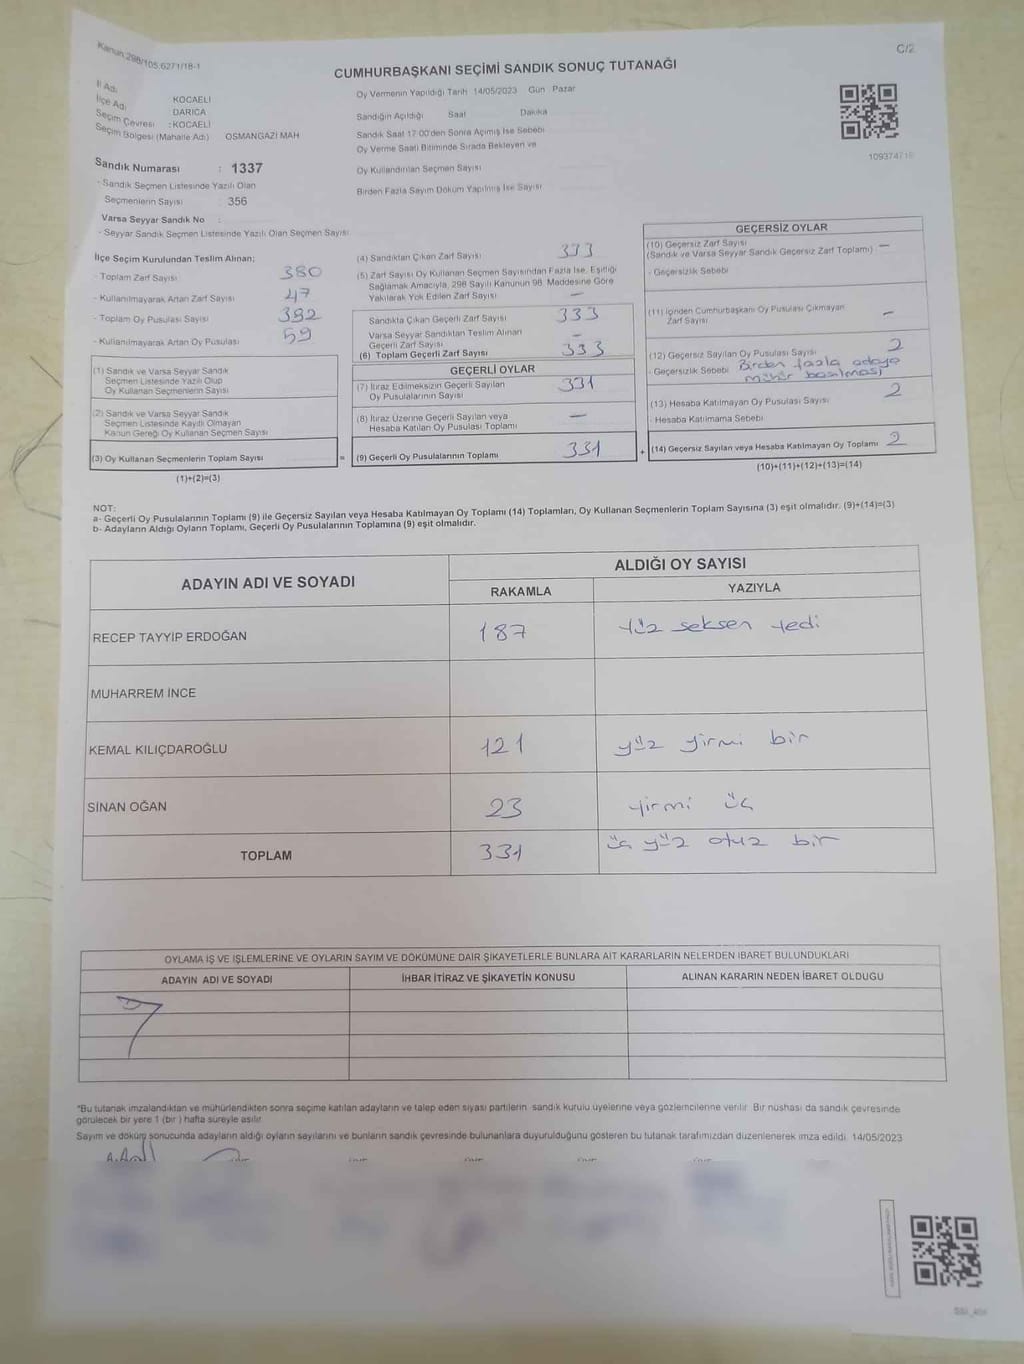 Kanun:298/105,6271/18-1
C/2
CUMHURBAŞKANI SEÇİMİ SANDIK SONUÇ TUTANAĞI
İl Adı
KOCAELİ
İlçe Adı
DARICA
Seçim Çevresi : KOCAELİ
Seçim Bölgesi (Mahalle Adı) OSMANGAZİ MAH
Sandık Numarası : 1337
- Sandık Seçmen Listesinde Yazılı Olan
Seçmenlerin Sayısı 356
Varsa Seyyar Sandık No :
- Seyyar Sandık Seçmen Listesinde Yazılı Olan Seçmen Sayısı
Oy Vermenin Yapıldığı Tarih 14/05/2023 Gün Pazar
Sandığın Açıldığı Saat Dakika
Sandık Saat 17:00'den Sonra Açılmış İse Sebebi
Oy Verme Saati Bitiminde Sırada Bekleyen ve
Oy Kullandırılan Seçmen Sayısı
Birden Fazla Sayım Döküm Yapılmış İse Sayısı
İlçe Seçim Kurulundan Teslim Alınan;
- Toplam Zarf Sayısı 380
- Kullanılmayarak Artan Zarf Sayısı 47
- Toplam Oy Pusulası Sayısı 392
- Kullanılmayarak Artan Oy Pusulası 59
(1) Sandık ve Varsa Seyyar Sandık
Seçmen Listesinde Yazılı Olup
Oy Kullanan Seçmenlerin Sayısı
(2) Sandık ve Varsa Seyyar Sandık
Seçmen Listesinde Kayıtlı Olmayan
Kanun Gereği Oy Kullanan Seçmen Sayısı
(3) Oy Kullanan Seçmenlerin Toplam Sayısı
=
(1)+(2)=(3)
(4) Sandıktan Çıkan Zarf Sayısı 333
(5) Zarf Sayısı Oy Kullanan Seçmen Sayısından Fazla İse, Eşitliği
Sağlamak Amacıyla, 298 Sayılı Kanunun 98. Maddesine Göre
Yakılarak Yok Edilen Zarf Sayısı –
Sandıkta Çıkan Geçerli Zarf Sayısı 333
Varsa Seyyar Sandıktan Teslim Alınan
Geçerli Zarf Sayısı –
(6) Toplam Geçerli Zarf Sayısı 333
GEÇERLİ OYLAR
(7) İtiraz Edilmeksizin Geçerli Sayılan
Oy Pusulalarının Sayısı 331
(8) İtiraz Üzerine Geçerli Sayılan veya
Hesaba Katılan Oy Pusulası Toplamı –
(9) Geçerli Oy Pusulalarının Toplamı 331
+
GEÇERSİZ OYLAR
(10) Geçersiz Zarf Sayısı
(Sandık ve Varsa Seyyar Sandık Geçersiz Zarf Toplamı) –
- Geçersizlik Sebebi
(11) İçinden Cumhurbaşkanı Oy Pusulası Çıkmayan
Zarf Sayısı –
(12) Geçersiz Sayılan Oy Pusulası Sayısı 2
- Geçersizlik Sebebi Birden fazla adaya
mühür basılması
(13) Hesaba Katılmayan Oy Pusulası Sayısı 2
- Hesaba Katılmama Sebebi
(14) Geçersiz Sayılan veya Hesaba Katılmayan Oy Toplamı 2
(10)+(11)+(12)+(13)=(14)
NOT:
a- Geçerli Oy Pusulalarının Toplamı (9) ile Geçersiz Sayılan veya Hesaba Katılmayan Oy Toplamı (14) Toplamları, Oy Kullanan Seçmenlerin Toplam Sayısına (3) eşit olmalıdır. (9)+(14)=(3)
b- Adayların Aldığı Oyların Toplamı, Geçerli Oy Pusulalarının Toplamına (9) eşit olmalıdır.
ADAYIN ADI VE SOYADI
ALDIĞI OY SAYISI
RAKAMLA YAZIYLA
RECEP TAYYİP ERDOĞAN 187 Yüz seksen yedi
MUHARREM İNCE
KEMAL KILIÇDAROĞLU 121 yüz yirmi bir
SİNAN OĞAN 23 yirmi üç
TOPLAM 331 üç yüz otuz bir
OYLAMA İŞ VE İŞLEMLERİNE VE OYLARIN SAYIM VE DÖKÜMÜNE DAİR ŞİKAYETLERLE BUNLARA AİT KARARLARIN NELERDEN İBARET BULUNDUKLARI
ADAYIN ADI VE SOYADI İHBAR İTİRAZ VE ŞİKAYETİN KONUSU ALINAN KARARIN NEDEN İBARET OLDUĞU
*Bu tutanak imzalandıktan ve mühürlendikten sonra seçime katılan adayların ve talep eden siyasi partilerin sandık kurulu üyelerine veya gözlemcilerine verilir. Bir nüshası da sandık çevresinde
görülecek bir yere 1 (bir) hafta süreyle asılır.
Sayım ve döküm sonucunda adayların aldığı oyların sayılarını ve bunların sandık çevresinde bulunanlara duyurulduğunu gösteren bu tutanak tarafımızdan düzenlenerek imza edildi. 14/05/2023